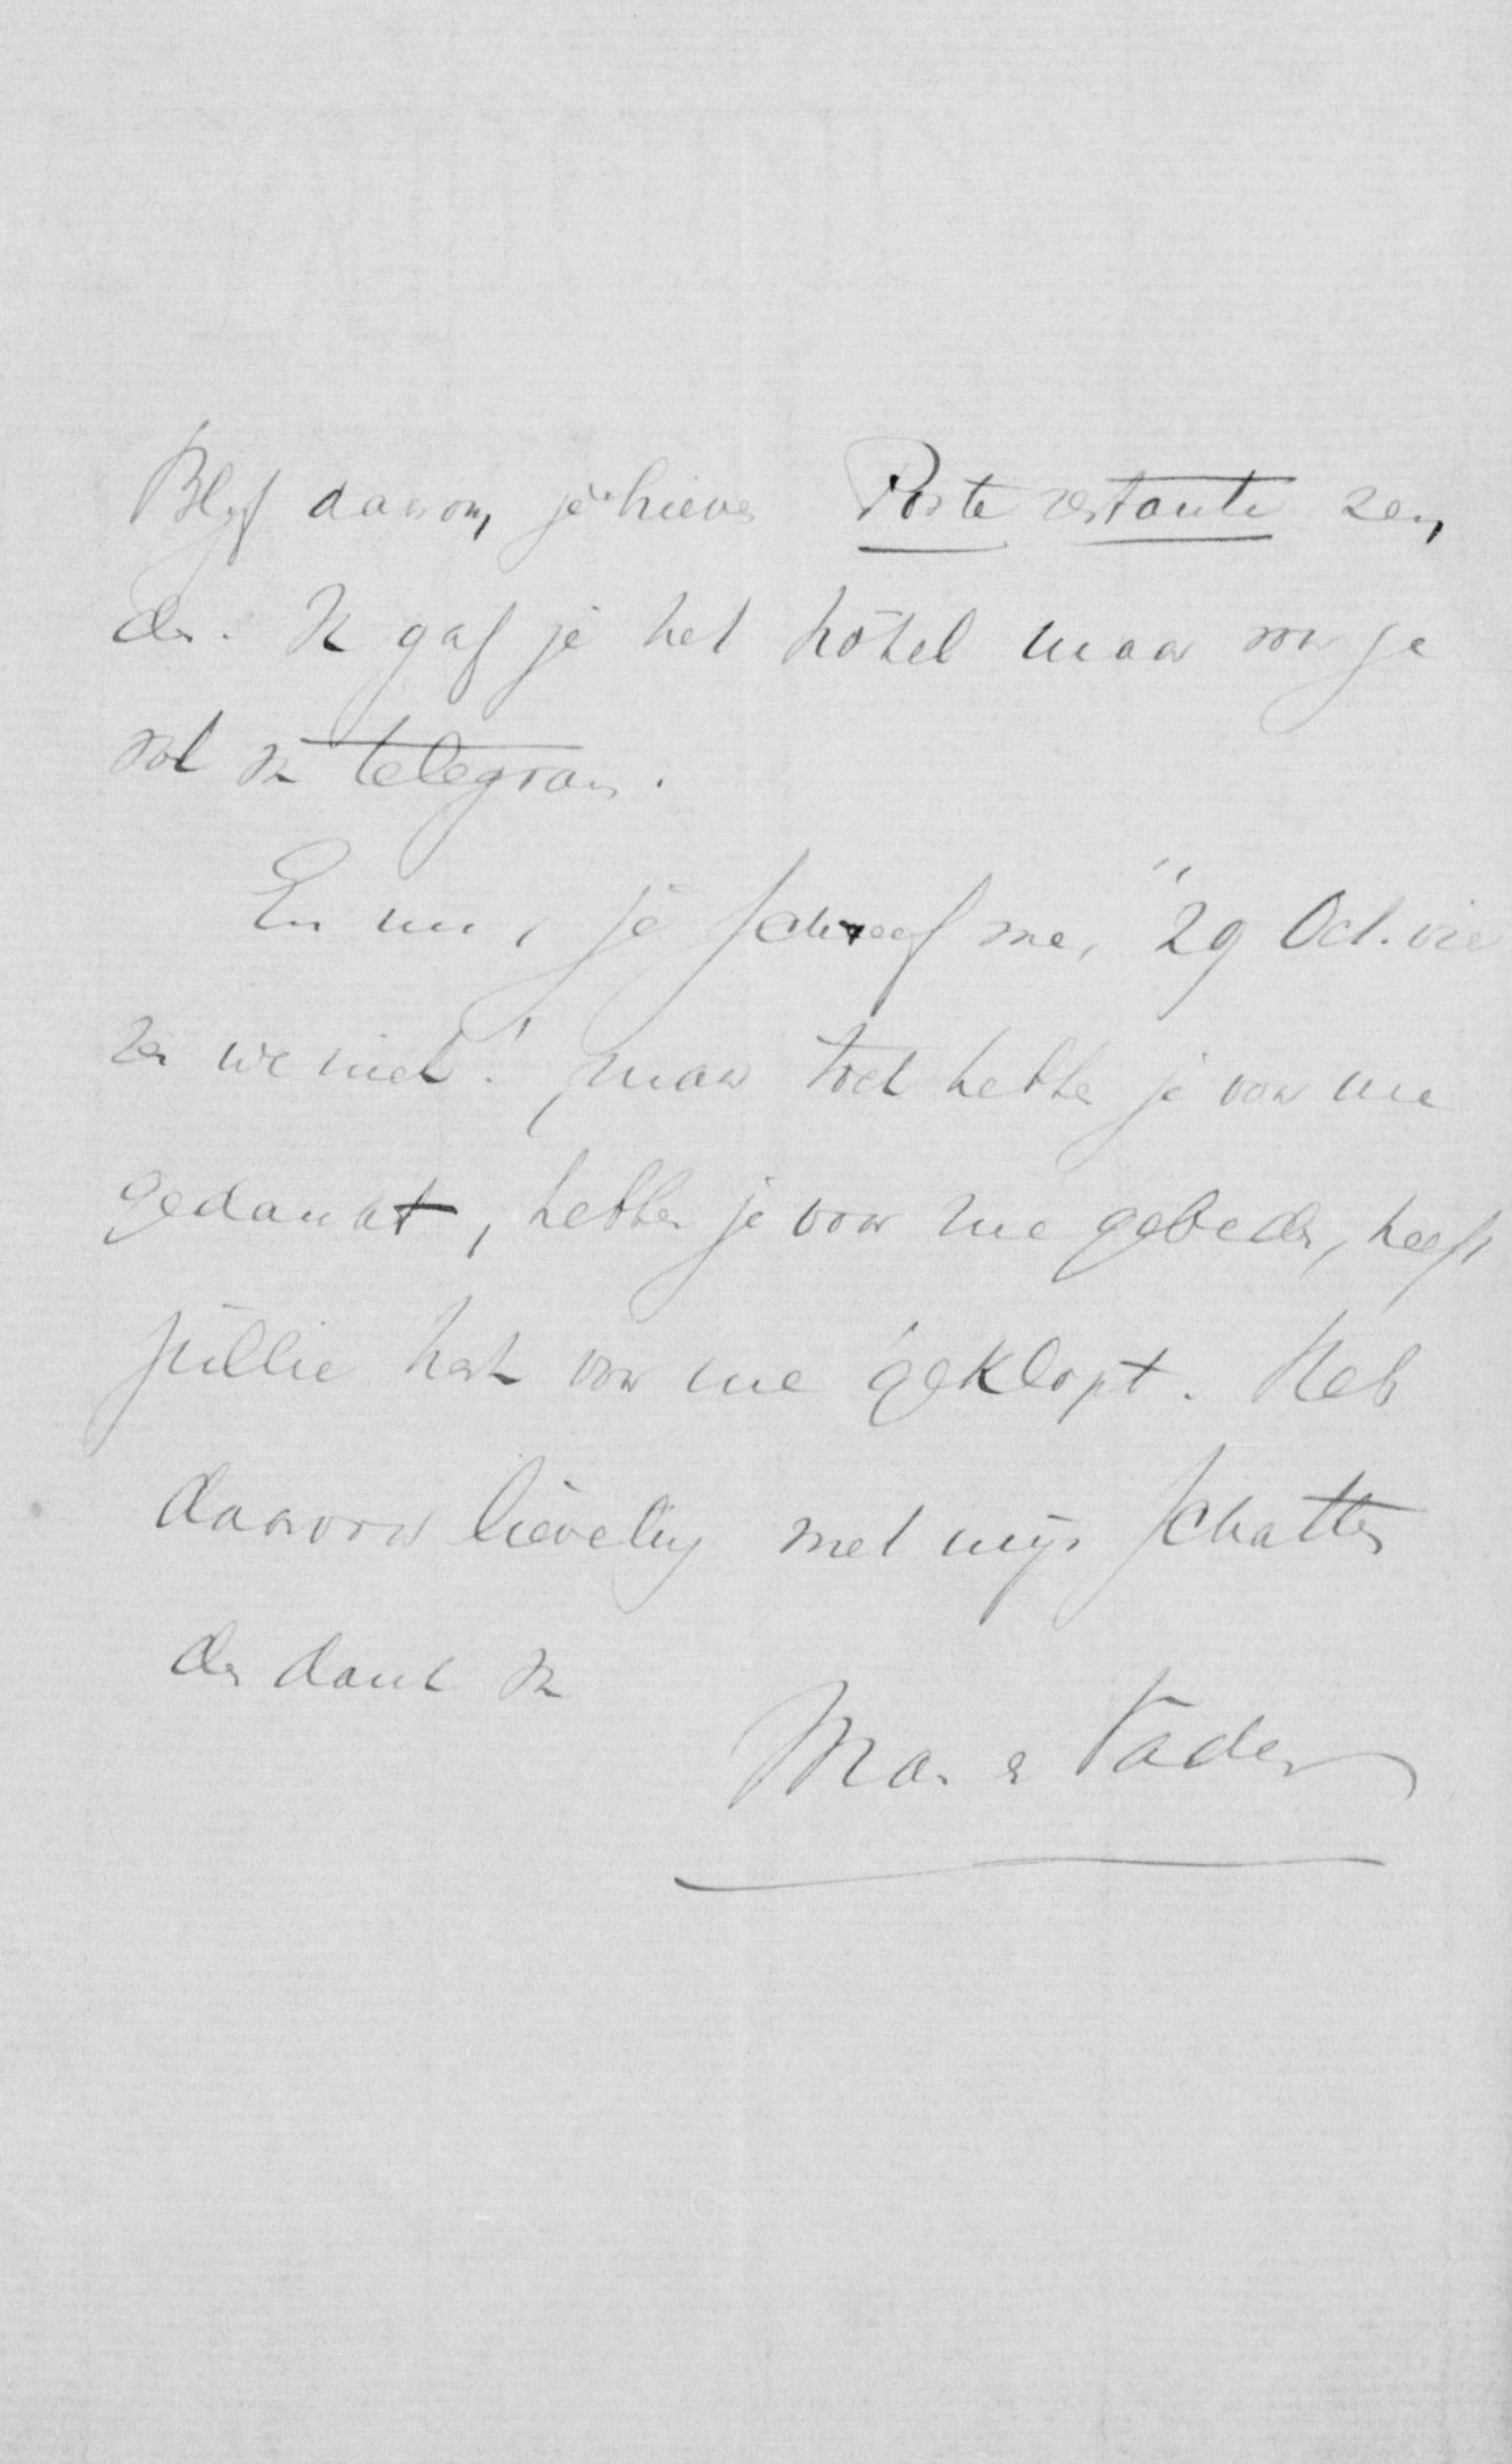 Blijf daarom je brieven Poste restante zen,
den. Ik gaf je het hôtel maar voor je
tel telegram.
En nu, je schreef me, "29 Oct. vie
ren we niet" maar toch hebben je voor me
gedankt, hebben je voor me gebeden, heeft
jullie hart voor me geklopt. Heb
daarvoor lieveling met mijn schatten
den dank
Man en Vader